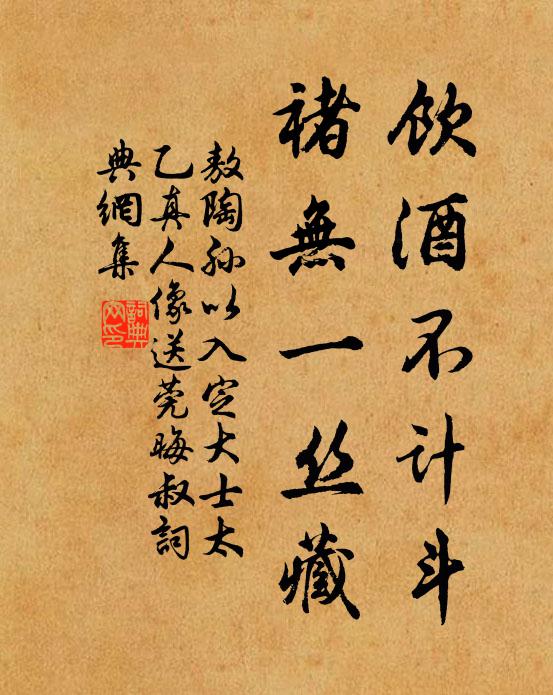 飲酒不计斗
褚無一丝藏
敖陶孙以入定大士太
乙真人像送莞晦叔詞
典網集
詞典
网印